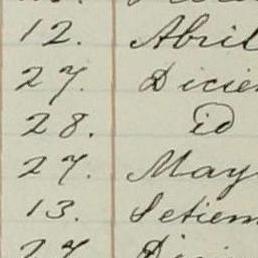 12. Abril
27. Dicie
28. id
27. May
13. Setiem
27 Dici